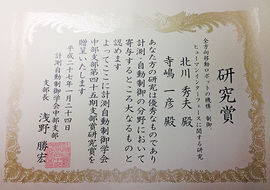 研究賞
全方向移動ロボットの機構、制御、
ヒューマンインターフェースに関する研究
北川 秀夫 殿
寺嶋 一彦 殿
あなた方の研究は優秀なものであり
計測自動制御の分野において
寄与するところ大なるものと
認めます
よってここに計測自動制御学会
中部支部第四十五期支部賞研究賞を
贈呈いたします
平成二十七年一月二十四日
計測自動制御学会中部支部
支部長 浅野 勝宏